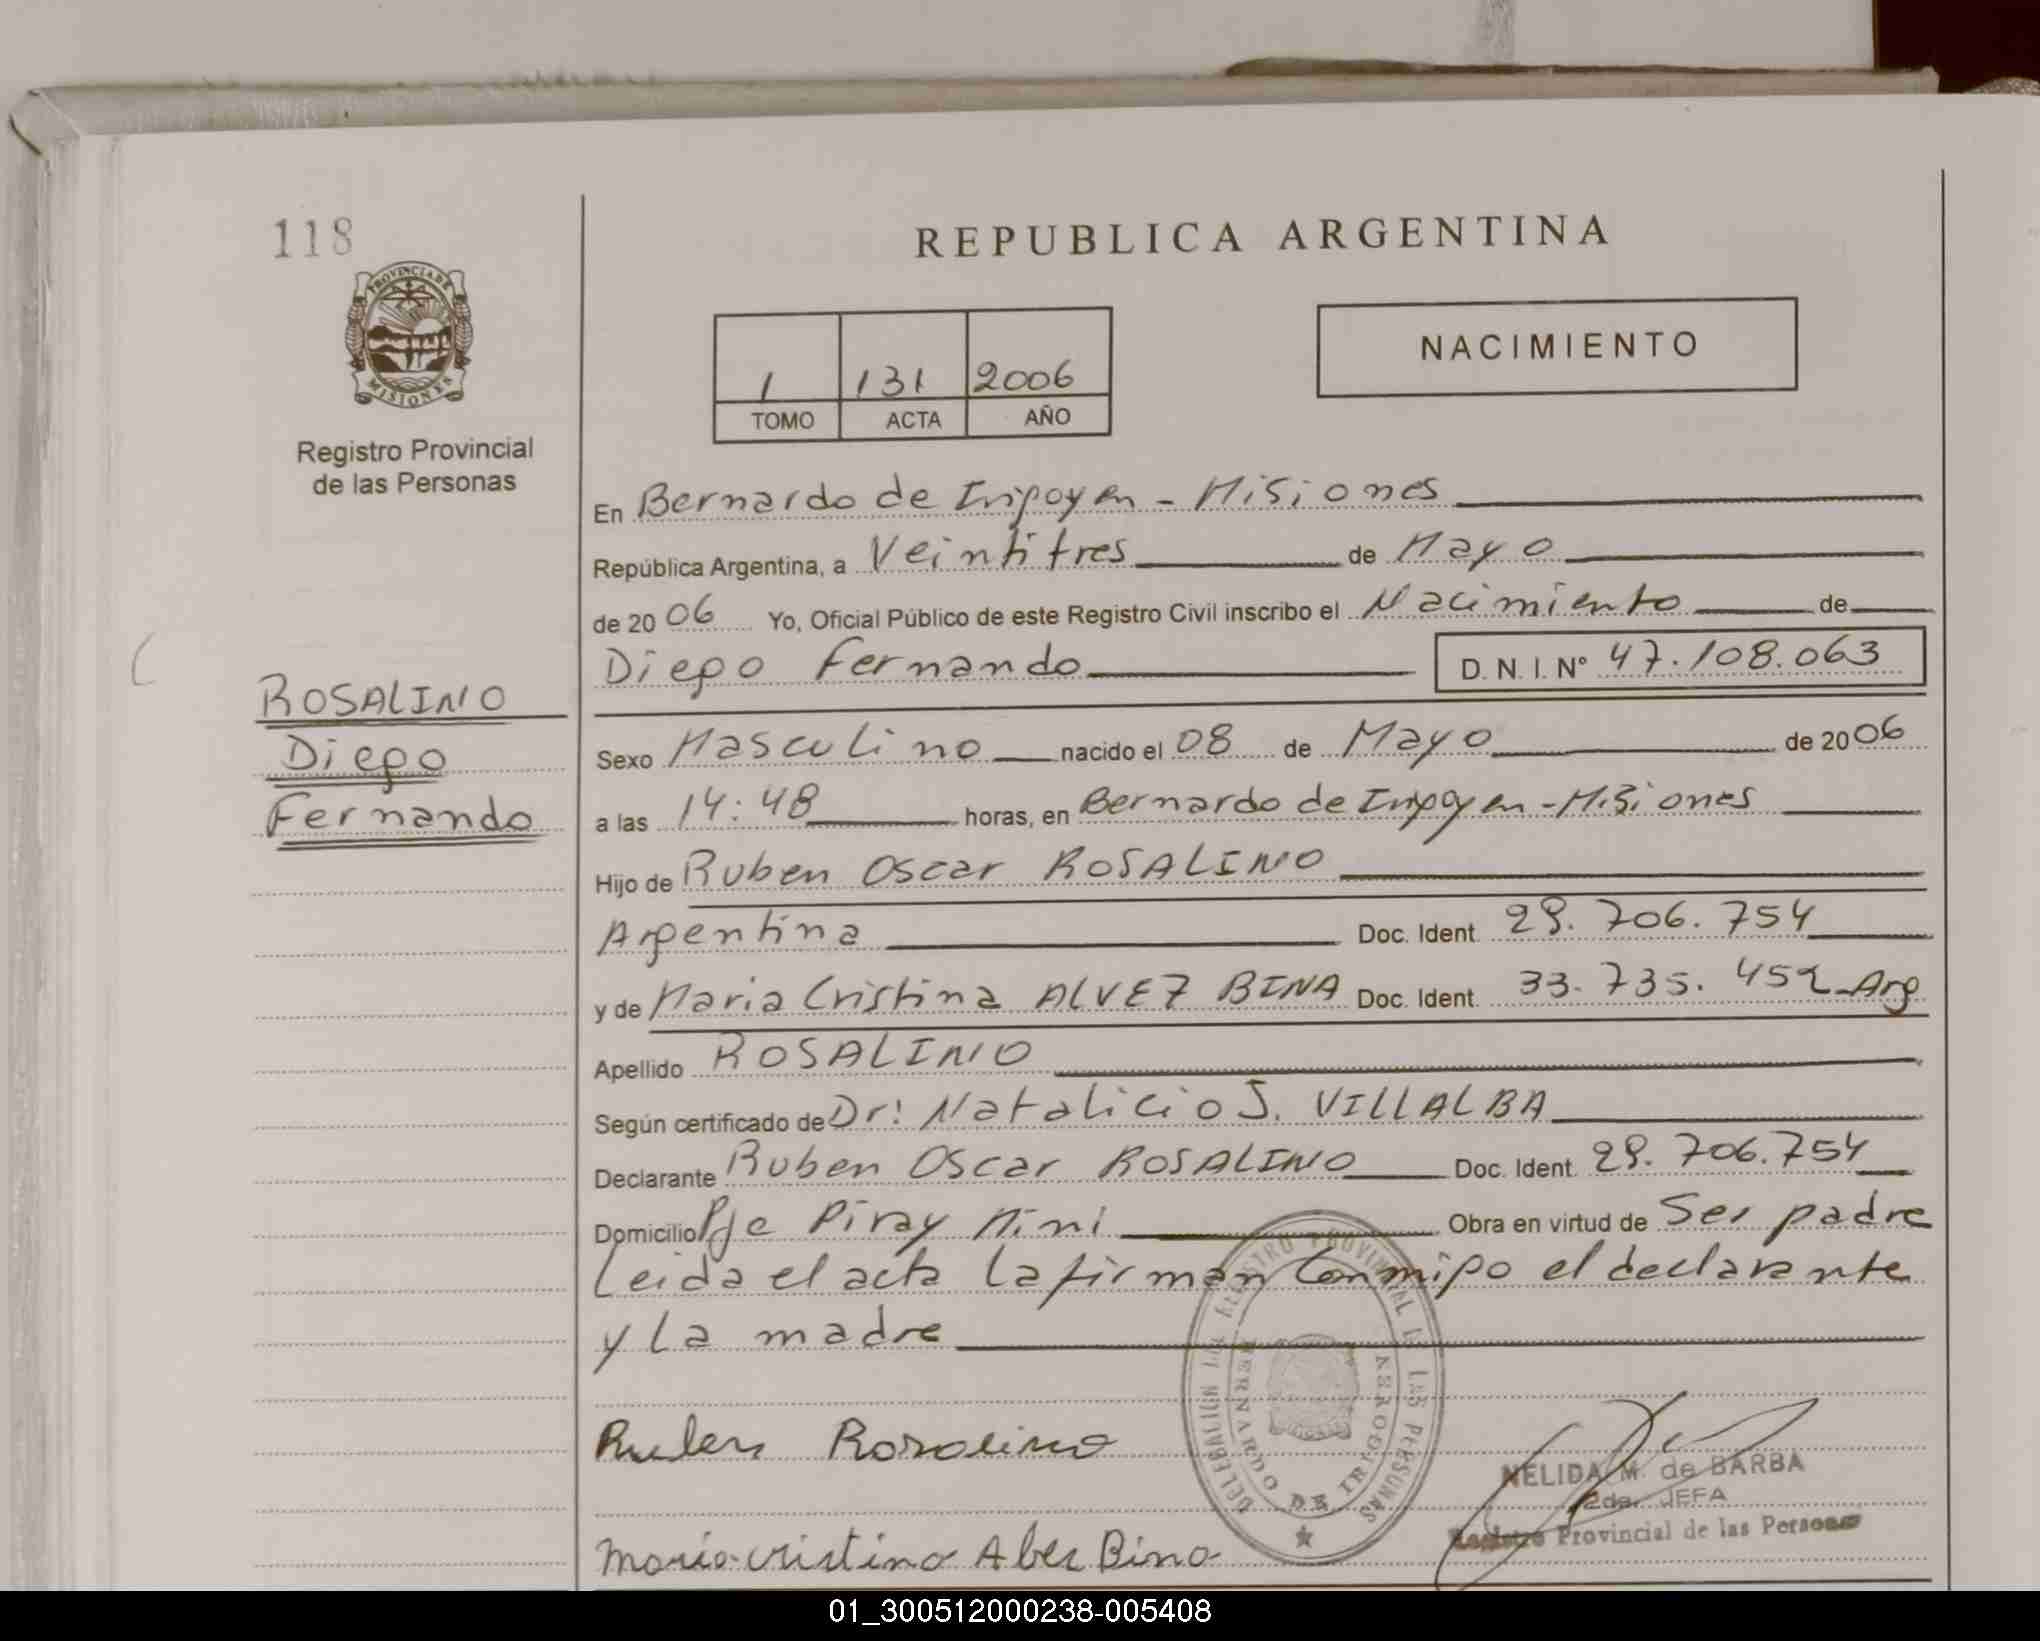 118
REPUBLICA ARGENTINA
PROVINCIA DE
MISIONES
Registro Provincial
de las Personas
1 131 2006
TOMO ACTA AÑO
NACIMIENTO
En Bernardo de Irigoyen - Misiones
República Argentina, a Veintitres de Mayo
de 2006 Yo, Oficial Público de este Registro Civil inscribo el Nacimiento de
Diego Fernando D. N. I. Nº 47.108.063
ROSALINO
Diego
Fernando
Sexo Masculino nacido el 08 de Mayo de 2006
a las 14:48 horas, en Bernardo de Irigoyen - Misiones
Hijo de Ruben Oscar ROSALINO
Argentina Doc. Ident. 29.706.754
y de Maria Cristina ALVEZ BINA Doc. Ident. 33.735.452 Arg
Apellido ROSALINO
Según certificado de Dr: Natalicio J. VILLALBA
Declarante Ruben Oscar ROSALINO Doc. Ident. 29.706.754
Domicilio Pje Piray Mini Obra en virtud de Ser padre
Leida el acta la firman conmigo el declarante
y la madre
DELEGACION DEL REGISTRO PROVINCIAL DE LAS PERSONAS
BERNARDO DE IRIGOYEN
Ruben Rosalino
NELIDA M. de BARBA
2da. JEFA
Registro Provincial de las Personas
Maria Cristina Alvez Bina
01_300512000238-005408